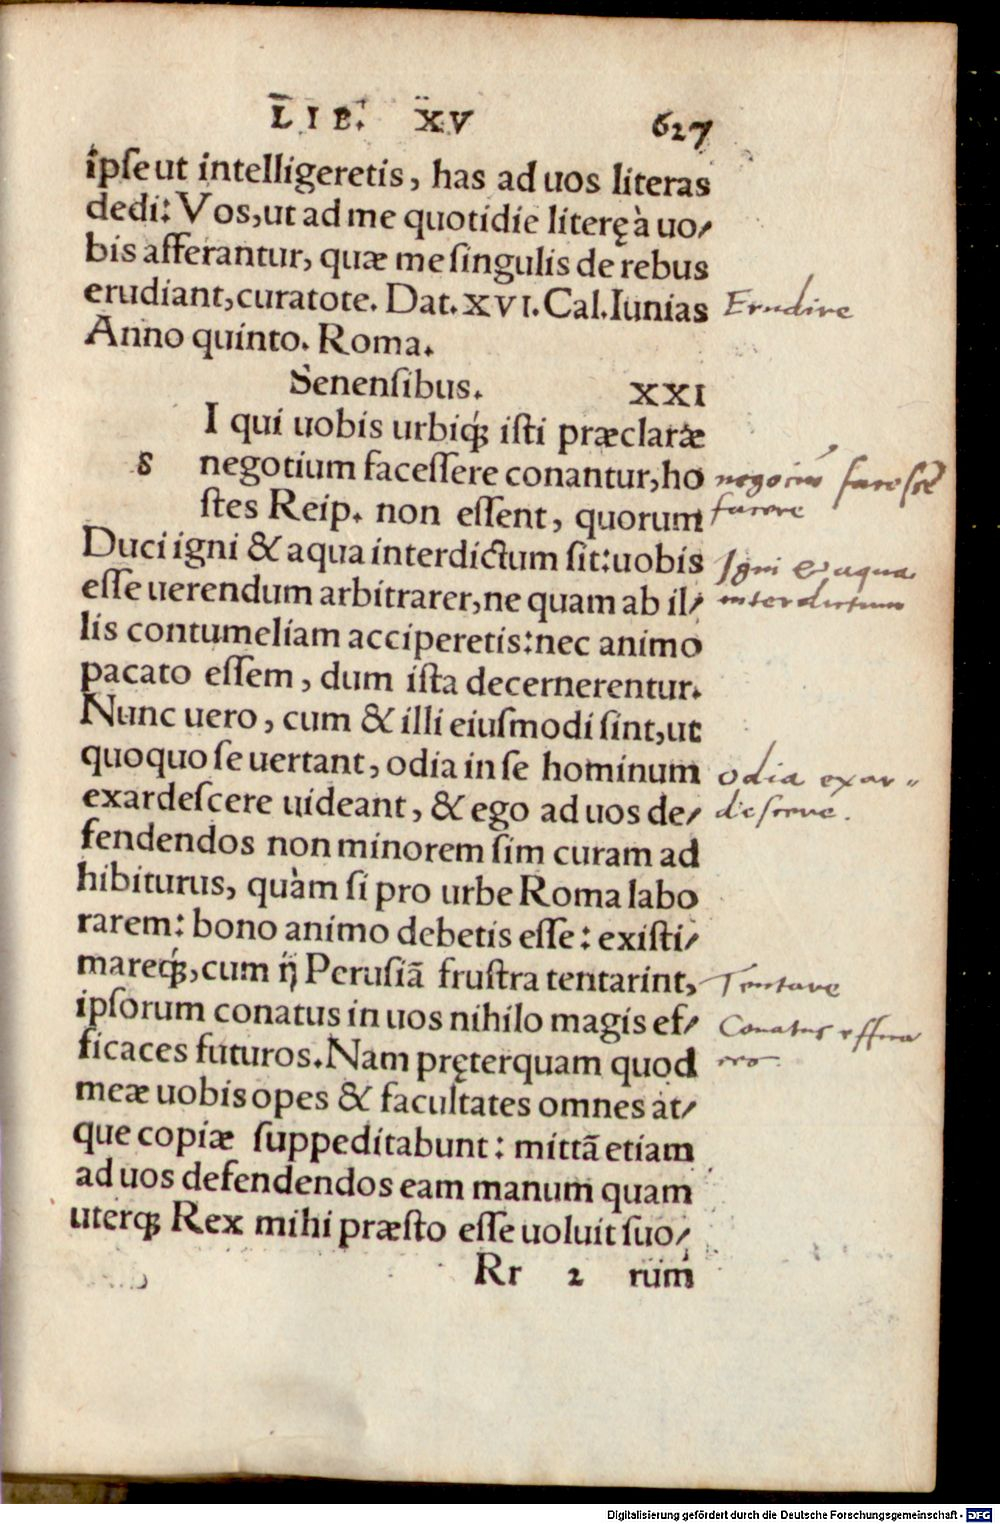 LIB. XV 627
ipse ut intelligeretis, has ad uos literas
dedi: Vos, ut ad me quotidie literę à uo/
bis afferantur, quæ me singulis de rebus
erudiant, curatote. Dat. XVI. Cal. Iunias
Erudire
Anno quinto. Roma.
Senensibus. XXI
I qui uobis urbiq́; isti præclaræ
s negotium facessere conantur, ho
negociũ facessẽ
stes Reip. non essent, quorum
facere
Duci igni & aqua interdictum sit: uobis
Igni & aqua
esse uerendum arbitrarer, ne quam ab il/
interdictum
lis contumeliam acciperetis: nec animo
pacato essem, dum ista decernerentur.
Nunc uero, cum & illi eiusmodi sint, ut
quoquo se uertant, odia in se hominum
odia exar-
exardescere uideant, & ego ad uos de/
descere.
fendendos non minorem sim curam ad
hibiturus, quàm si pro urbe Roma labo
rarem: bono animo debetis esse: existi/
mareq́;, cum ij Perusiã frustra tentarint,
Tentare
ipsorum conatus in uos nihilo magis ef/
Conatus effica
ficaces futuros. Nam pręterquam quod
meæ uobis opes & facultates omnes at/
que copiæ suppeditabunt: mittã etiam
ad uos defendendos eam manum quam
uterq; Rex mihi præsto esse uoluit suo/
Rr 2 rum
Digitalisierung gefördert durch die Deutsche Forschungsgemeinschaft - DFG